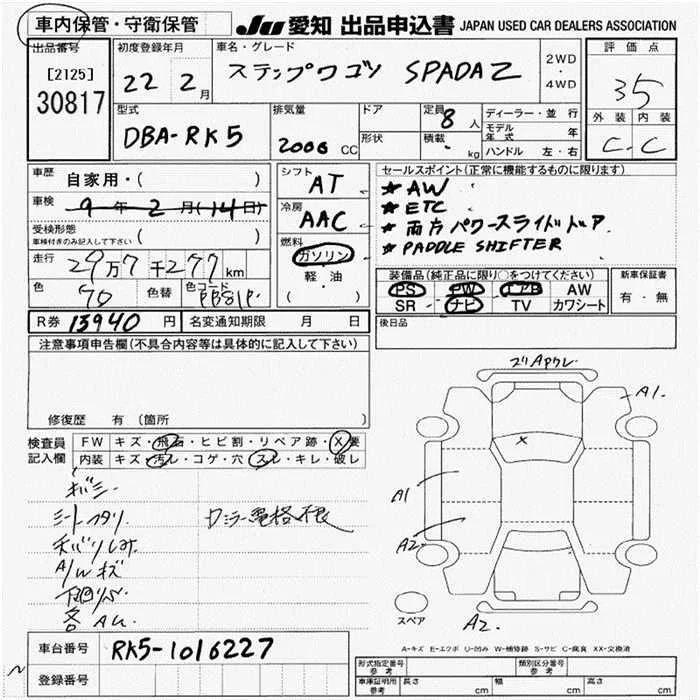 車内保管・守衛保管
JU 愛知 出品申込書 JAPAN USED CAR DEALERS ASSOCIATION
出品番号
[2125]
30817
初度登録年月
22 2月
車名・グレード
ステップワゴン SPADA Z
2WD
・
4WD
評価点
35
外装 内装
C C
型式
DBA-RK5
排気量
2000 CC
ドア
形状
定員
8人
積載
kg
ディーラー・並行
モデル年式 年
ハンドル 左・右
車歴 自家用・( )
車検 9年2月(14日)
受検形態
車検付きのみ記入して下さい ( )
走行 29万7千277km
色 70 色替 色コード PB81P
シフト AT
冷房 AAC
燃料
ガソリン
軽油
( )
セールスポイント(正常に機能するものに限ります)
★ AW
★ ETC
★ 両方パワースライドドア
★ PADDLE SHIFTER
装備品(純正品に限り○をつけてください)
PS PW エアB AW
SR ナビ TV カワシート
新車保証書
有・無
R券 13940円 名変通知期限 月 日
後日品
注意事項申告欄(不具合内容等は具体的に記入して下さい)
修復歴 有(箇所 )
検査員記入欄
FW キズ・飛石・ヒビ割・リペア跡・X要
内装 キズ・汚レ・コゲ・穴・スレ・キレ・破レ
シートヘタリ
A/Wキズ
ミラー電格不良
A1.
X
A1
A2
A2.
スペア
A-キズ E-エクボ U-凹み W-補修跡 S-サビ C-腐食 XX-交換済
車台番号 RK5-1016227
登録番号
形式指定番号
参考
類別区分番号
参考
車庫証明用
参考
長さ cm 幅 cm 高さ cm